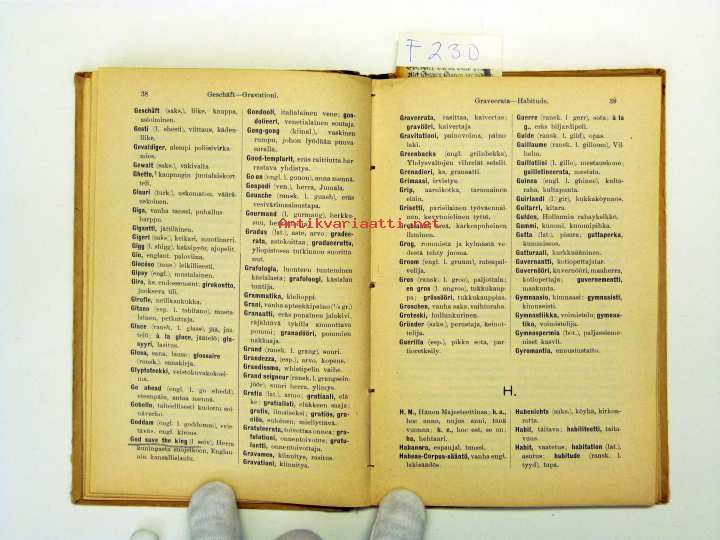 F 230
38 Geschäft—Gravationi.
Geschäft (saks.), liike, kauppa,
asioiminen.
Gesti (l. shesti), viittaus, käden-
liike.
Gevaldiger, alempi poliisivirka-
mies.
Gewalt (saks.), väkivalta.
Ghetto, kaupungin juutalaiskort-
teli.
Giauri (turk.), uskomaton, vääрä-
uskoinen.
Giga, vanha tanssi, pohallus-
harppu.
Gigantti, jättiläinen.
Gigerl (saks.), keikari, muotinarri.
Gigg (l. shigg), kääsipyör, ajopelit.
Gin, englant. paloviina.
Giocóso (mus.) leikillisesti.
Gipsy (engl.), mustalainen.
Giro, ks. endossement; girokontto,
juokseva tili.
Girofle, neilikankukka.
Glace (ransk. l. glass), jää, jää-
telö; à la glace, jäätelö; gla-
syyri, lasitus.
Glosa, sana, lause; glossaire
(ransk.) sanakirja.
Glyptoteekki, veistokuvakokoel-
ma.
Go ahead (engl. l. go ehedd),
eteenpäin, antaa mennä.
Gobelin, taiteellisesti kudottu sei-
näverho.
Goddam (engl. l. goddemm), veis-
tävä engl. kirous.
God save the king (l. seiv), Herra
kuningasta suojelkoon, Englan-
nin kansallislaulu.
Gondooli, italialainen vene; gon-
dolieri, venetialainen soutaja.
Gong-gong (kiinal.), vaskinen
rumpu, johon lyödään puuva-
saralla.
Good-templarit, eräs raittiutta har-
rastava yhdistys.
Go on (engl. l. gonon), anna mennä.
Gospodi (ven.), herra, Jumala.
Gouache (ransk. l. guash), eräs
vesivärimaalaustapa.
Antikvariaatti.net
Grafologia, luonteen tunteminen
käsialasta; grafoloogi, käsialan
tuntija.
Grammatika, kielioppi.
Grani, vanha apteekkipaino
Granaatti, eräs punainen jalokivi,
räjähtävä tykillä ammuttava
pommi; granadööri, pommien
nakkaaja.
Grand (ransk. l. grang), suuri.
Grandezza, (esp.), arvo, kopeus.
Grandissmo, whistipelin vaihe.
Gravamos, kiinnitys, rasitus.
Gravationi, kiinnitys.
Graveerata—Habitude. 39
Graveerata, rasittaa, kaivertaa;
gravööri, kaivertaja
Gravitationi, painovoima, paino-
laki.
Greenbacks (engl. l. grilisbekks),
Yhdysvaltojen viheriät setelit.
Grenadieri, ks. granaatti.
Grimaasi, irvistys.
Grip, aarnikotka, taruomainen
eläin.
Grog, rommista ja kylmästä ve-
destä tehty juoma.
Groom (engl. l. gruum), ratsupal-
velija.
Gros (ransk. l. groo), paljottain;
en gros (l. angroo), tukkukaup-
pa; grössööri, tukkukauppias.
Groschen, vanha saks. vaihtoraha.
Groteski, hullunkurinen.
Gründer (saks.), perustaja, keinot-
telija.
Guerilla (esp.), pikku sota, par-
tioretkeily.
Guerre (ransk. l. gerr), sota; à la
g., eräs biljardipeli.
Guide (ransk. l. giid), opas.
Guillaume (ransk. l. gilloom), Vil-
helm.
Guillotiini (l. gillo), mestauskone;
guillotineerata, mestata.
Guinea (engl. l. ghinee), kulta-
raha, kultapunta.
Guirlandi (l. gir), kukkaköynnös.
Guitarri, kitara.
Gulden, Hollannin rahayksikkö.
Gummi, kummi, kumminpihka.
Gutta (lat.), pisara; guttaperka,
kumminson.
Gutturaali, kurkkuääninen.
Guvernantti, kotiopettajatar.
Guvernööri, kuvernööri, maaherra,
kotiopettaja; guvernementti,
maakunta.
Gymnasio, kimnaasi; gymnasisti,
kimnasisti.
Gymnastiikka, voimistelu; gymnas-
tiko, voimistelija.
Gymnospermia (bot.), paljassieme-
niset kasvit.
Gyromantia, ennustustaito.
H.
H. M., Hänen Majesteettinsa; h. a.,
hoc anno, nojus anni, tänä
vuonna; h. e., hoc est, se on;
ha, hehtaari.
Habanera, espanjal. tanssi.
Habeas-Corpus-sääntö, vanha engl.
lakisäädös.
Habenichts (saks.), köyhä, kirkon-
rotta.
Habil, taitava; habiliteetti, taita-
vuus.
Habit, vaatetus; habitation (lat.),
asutus; habitude (ransk. l.
tyyd), tapa.